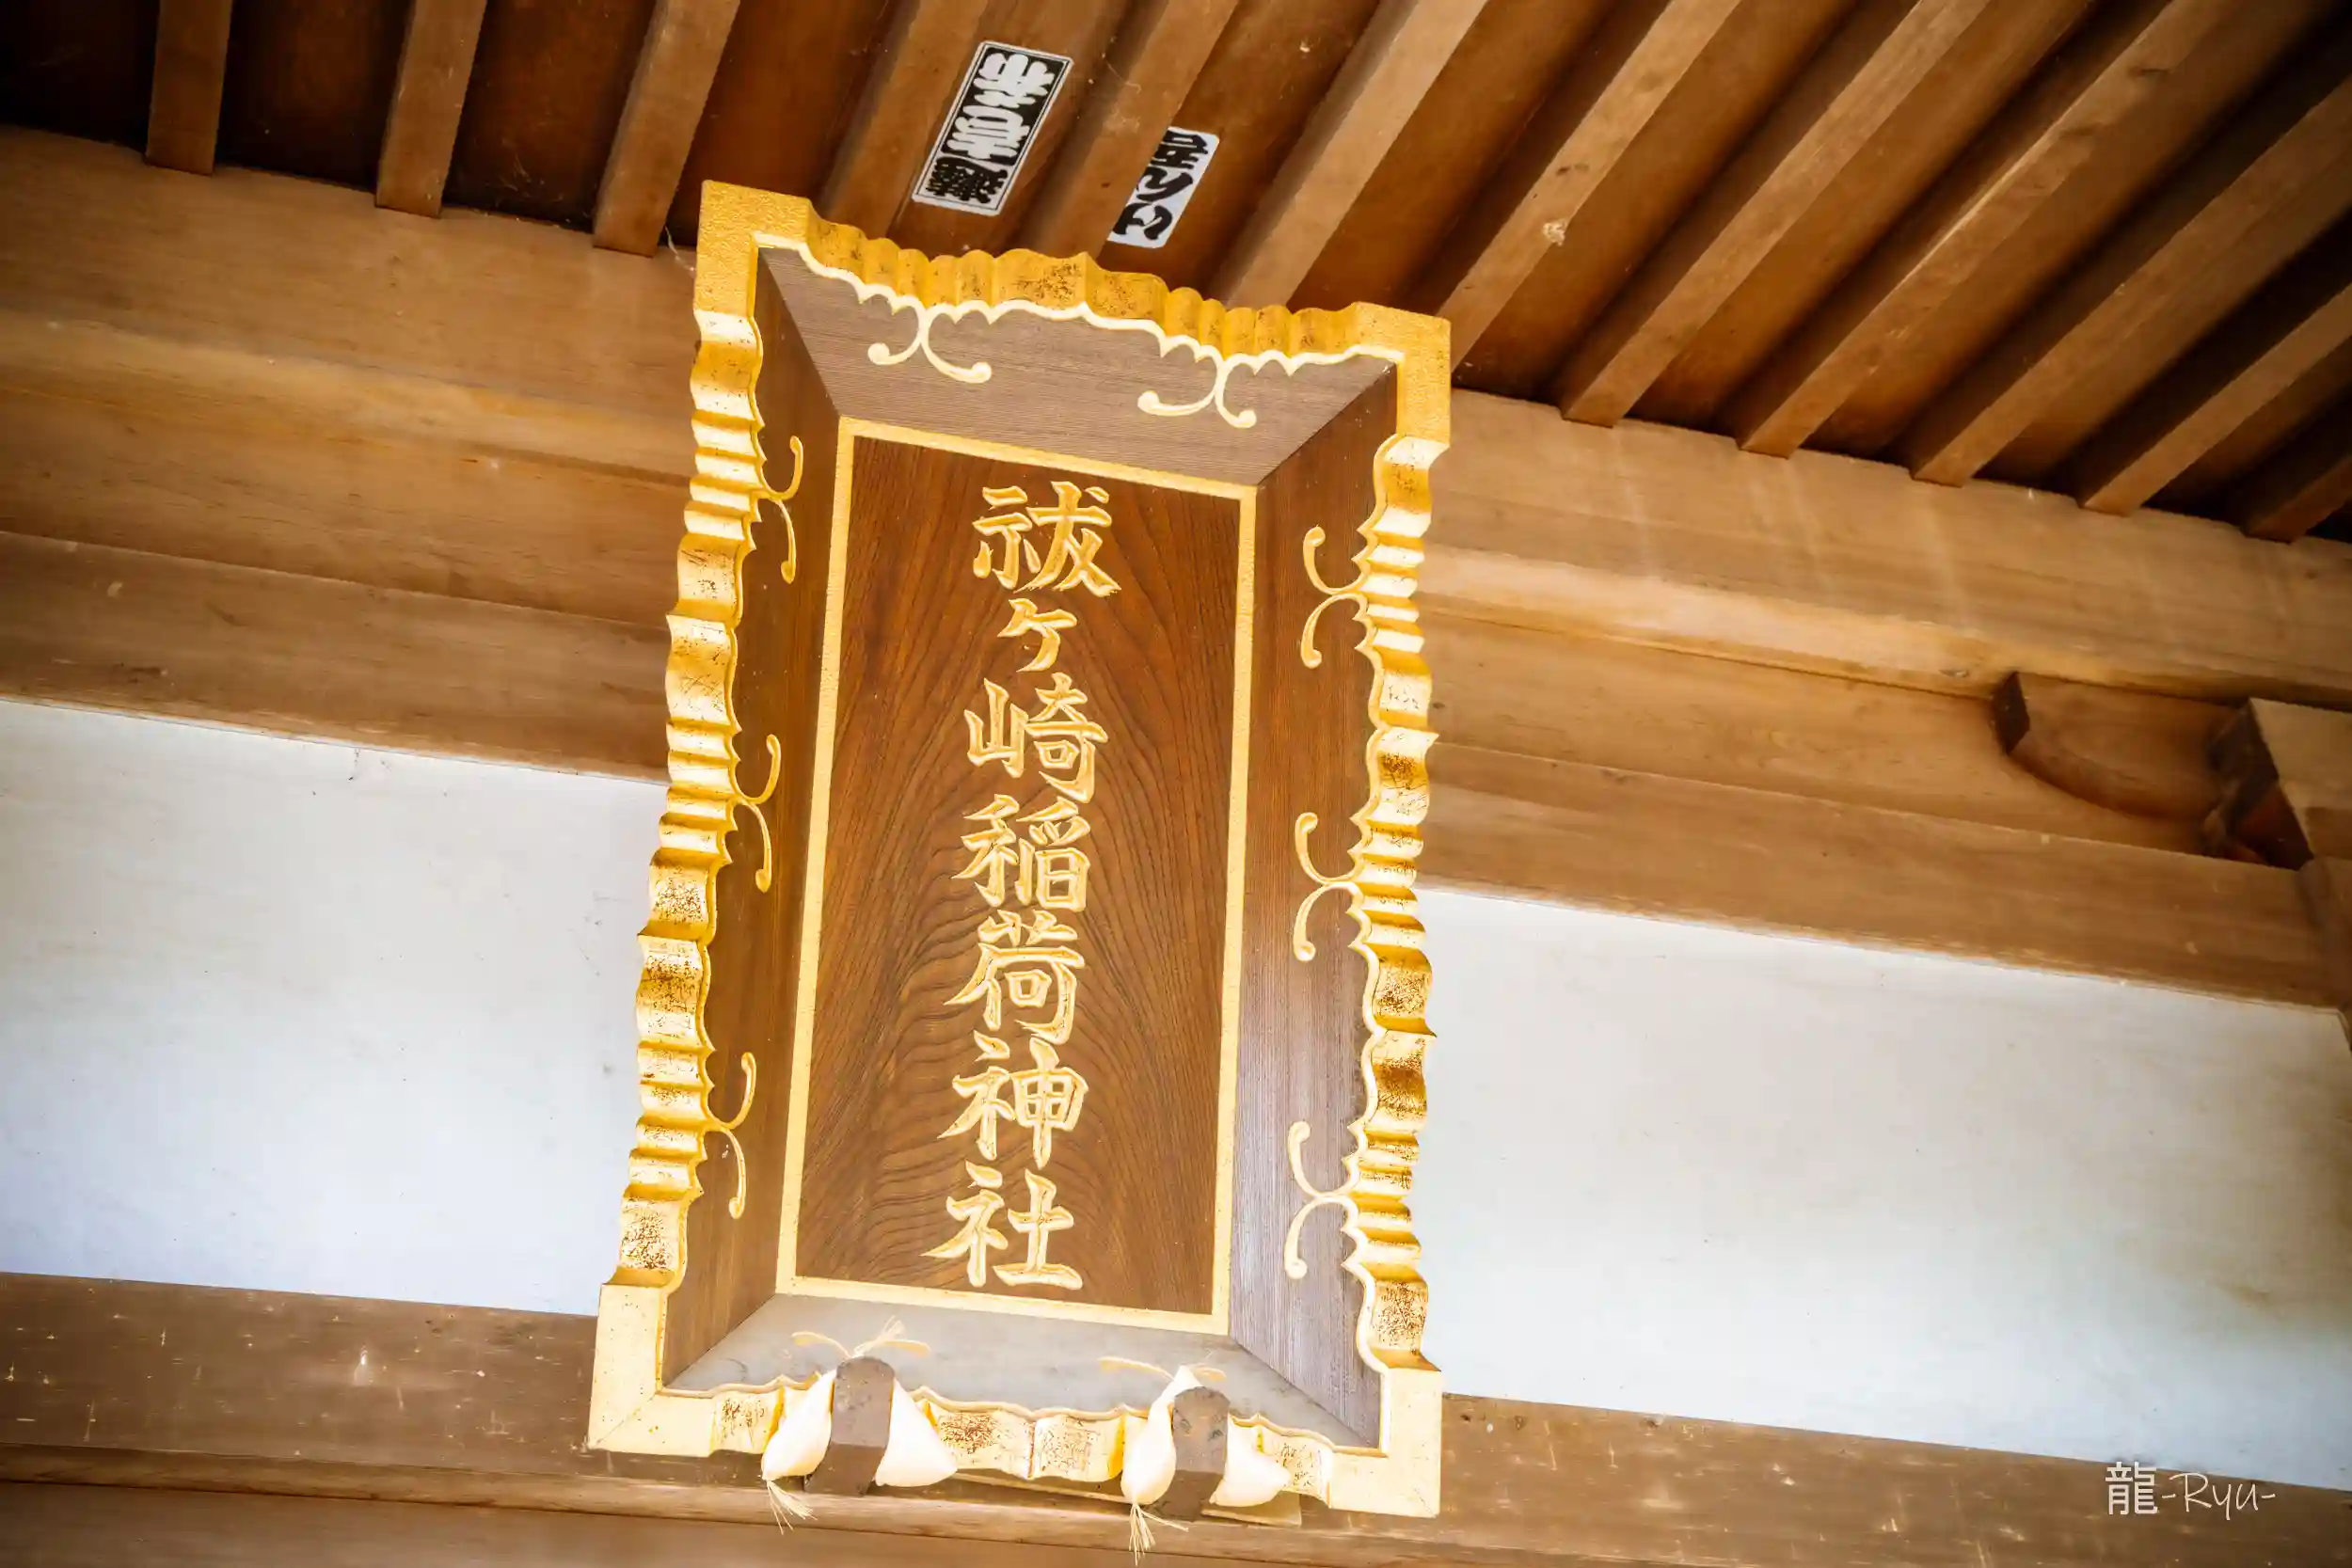 祓ヶ崎稲荷神社
龍-Ryu-